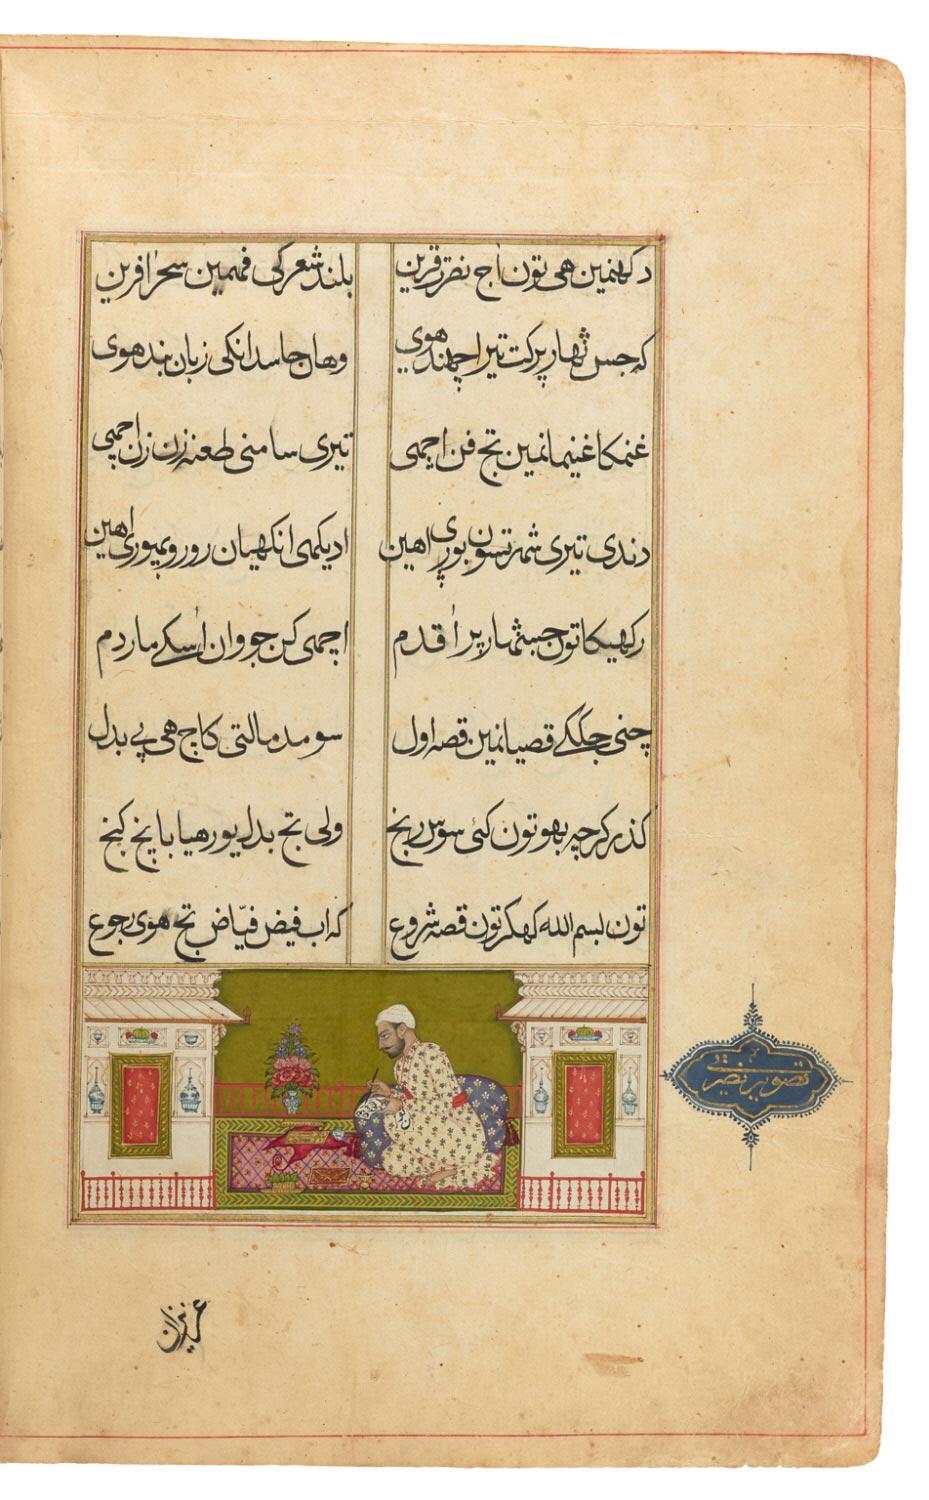 دکهنمین هی تون اج نصرتر قرین بلند شعر کی فهمین سحر افرین
که جس ٹهار پرکت تیرا چهند هوی وهان حاسدانکی زبان بند هوی
غنمکا غنیمانمین تج فن اچهی تیری سامنی طعنه زن زن اچهی
دندی تیری شمرتسون بوری اهین ادیکهی انکهیان رو رو بهوری اهین
رکهیکا تون جسٹهار پر اقدم اچهی کن جو وان اسکے ماردم
چنی جگکے قصیانمین قصه اول سو مدمالتی کاچ هی پی بدل
کذر کرچه بهو تون کئی سوس رنج ولی تج بدل یو رهیا با پنج کنج
تون بسم الله کهکر تون قصه شروع که اب فیض فیّاض تج هوی رجوع
تصویر نصرتی
عزیزان